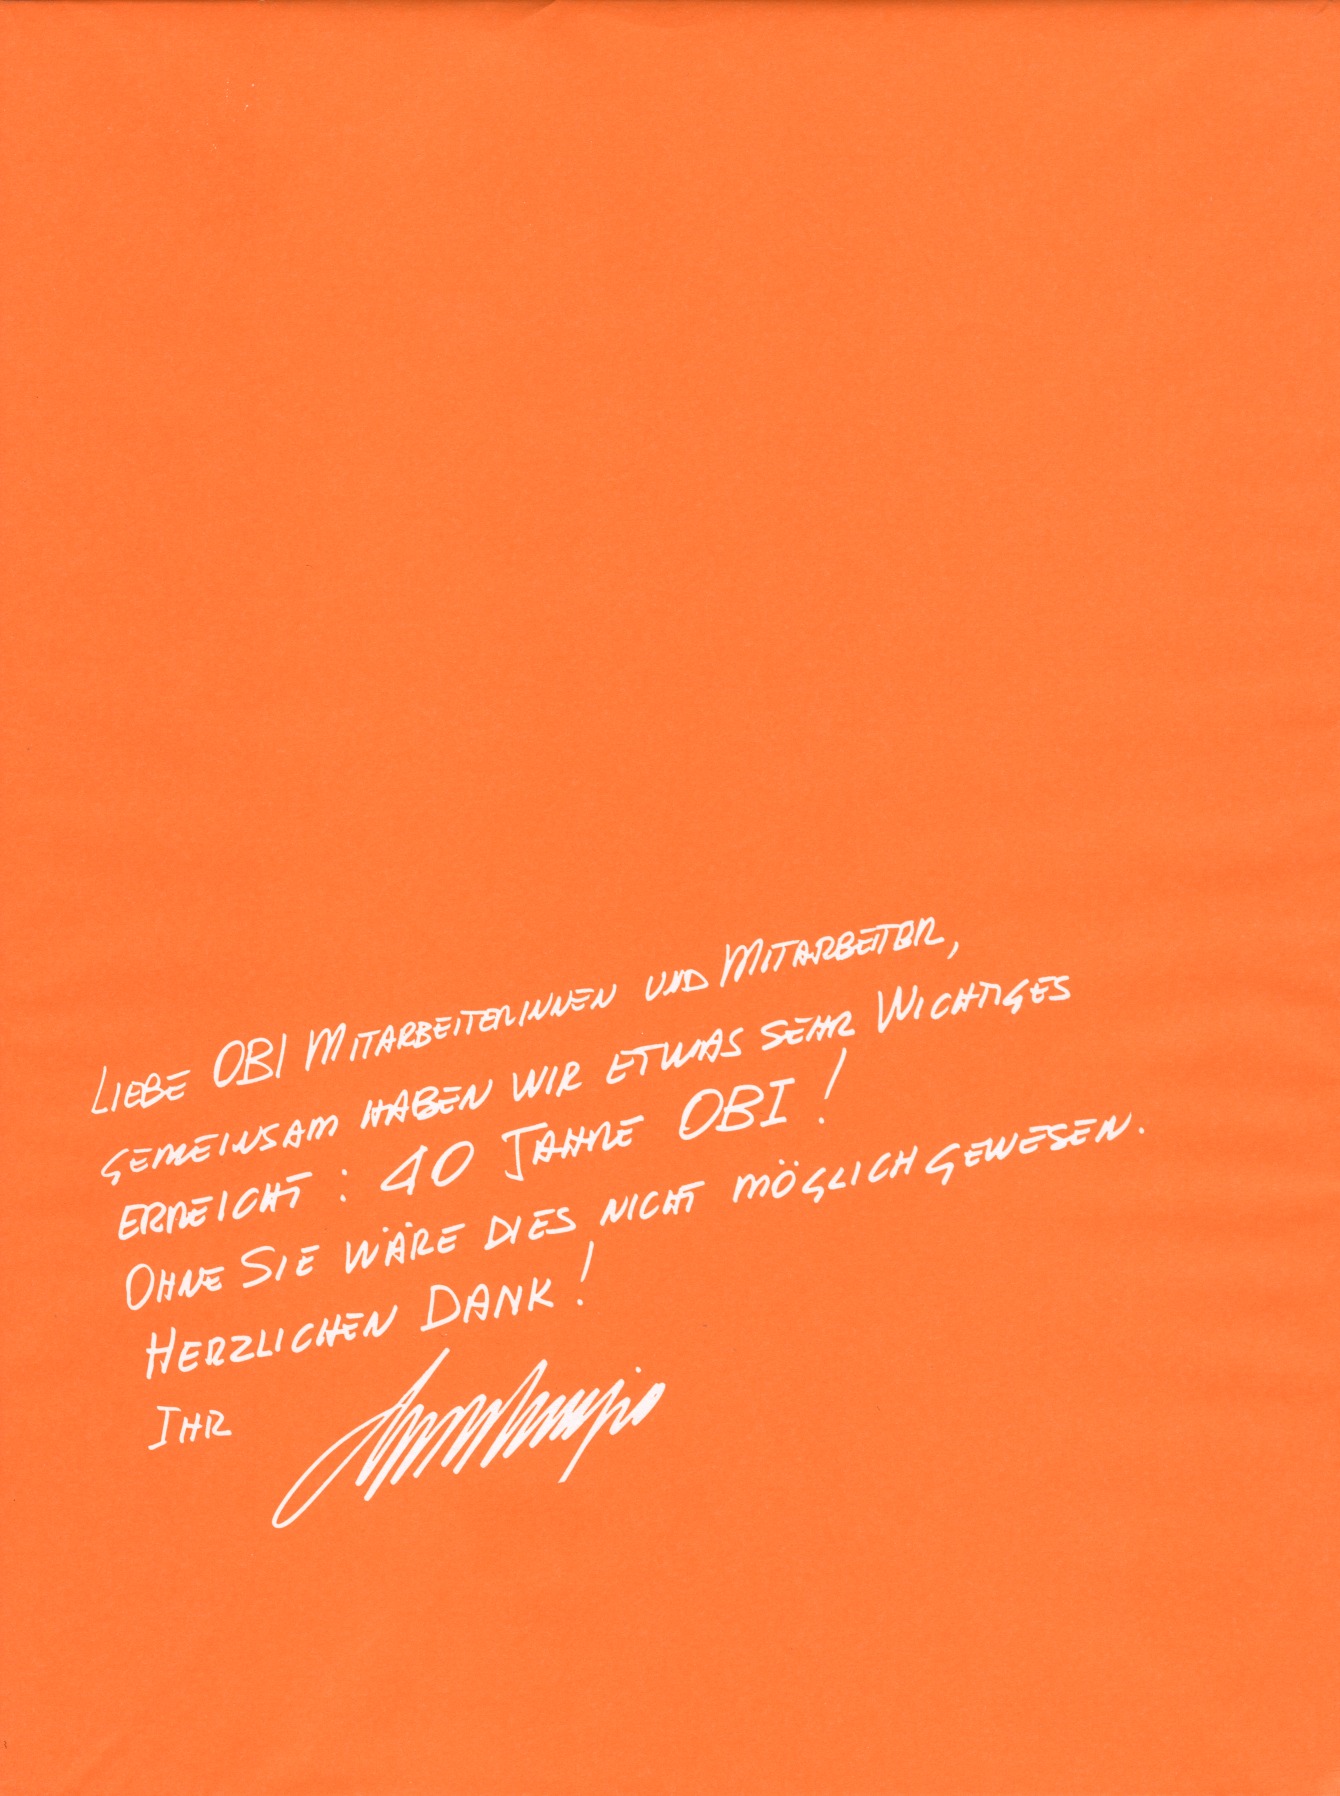 LIEBE OBI MITARBEITERINNEN UND MITARBEITER,
GEMEINSAM HABEN WIR ETWAS SEHR WICHTIGES
ERREICHT: 40 JAHRE OBI!
OHNE SIE WÄRE DIES NICHT MÖGLICH GEWESEN.
HERZLICHEN DANK!
IHR